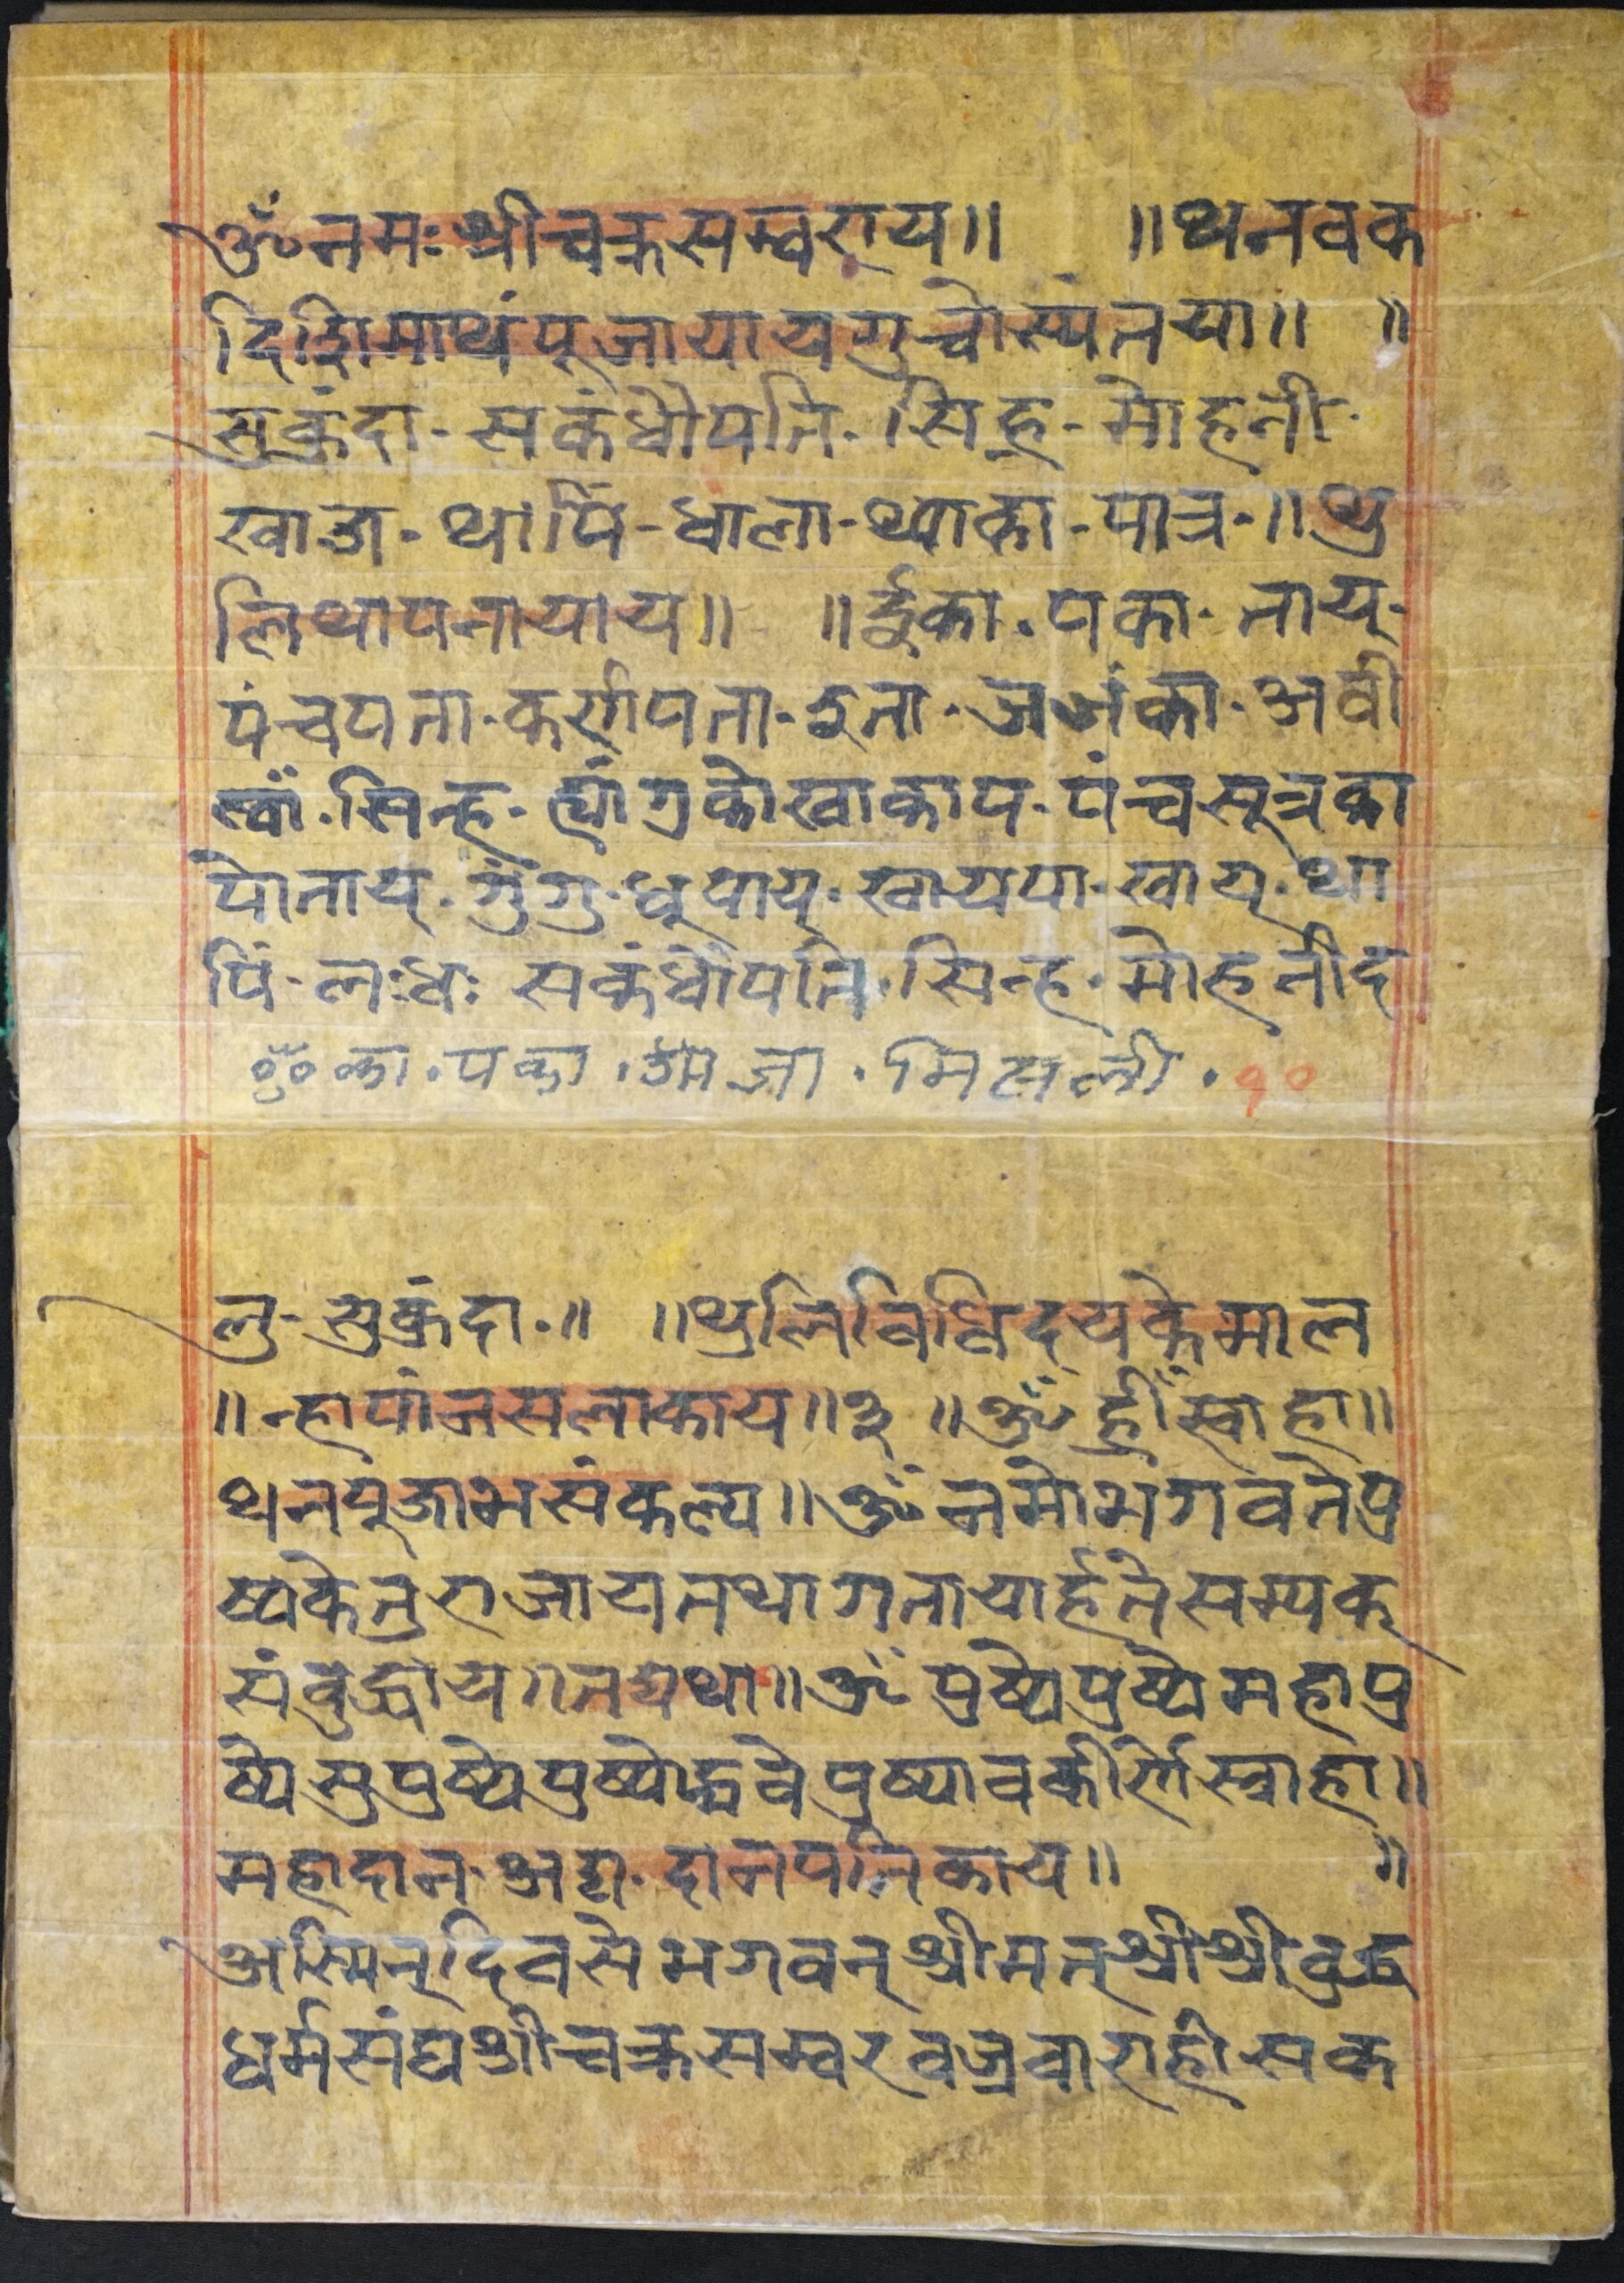 ॐ नमः श्रीचक्रसम्वराय॥ ॥थनवक
दिशिमाथंपूजायायगुच्वोस्यंतया॥ ॥
सुकुंदा - सकंधौपति - सिह्न - मोहनी -
खाज - थापिं - धाला - थ्याका - पात्र - ॥ थु
लिथापनायाय॥ ॥ईका . पका - ताय् -
पंचपता - कर्णपता - इता - जजंका - अवी
स्वाँ . सिन्ह - त्यां ग्रकोखाकाप - पंचसूत्रका
पोताय् . गुंगु - धूपाय् - स्वायपा - खाय् . था
पिं - लःधः सकंधौपति - सिन्ह - मोहनीद
ॐ का . पका . . मिसली . १०
लु - सुकुंदा - ॥ ॥थुलिविधिदयकेमाल
॥न्हापांजसलाकाय॥३ ॥ॐ ह्रीँ स्वाहा॥
थनपूजाभसंकल्प॥ॐ नमोभगवतेपु
ष्पकेतुराजायतथागतायार्हतेसम्यक्
संबुद्धाय॥तद्यथा॥ॐ पुष्पेपुष्पेमहापु
ष्पेसुपुष्पेपुष्पोद्भवेपुष्पावकीर्णेस्वाहा॥
महादान - अद्य - दानपतिकाय॥ ॥
अस्मिन्दिवसेभगवन्श्रीमत्श्रीश्रीबुद्ध
धर्मसंघश्रीचक्रसम्वरवज्रवाराहीसक